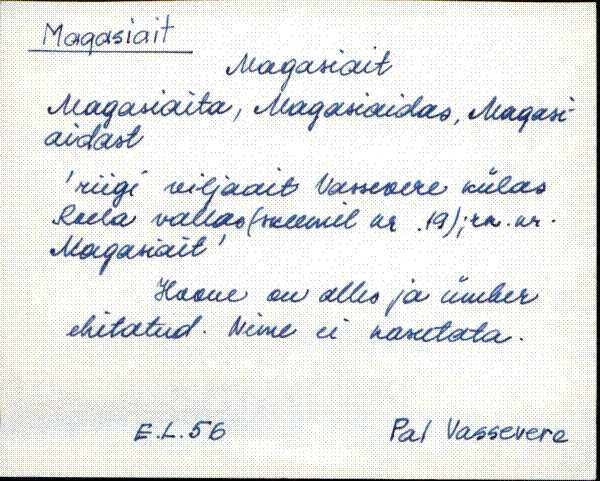 Magasiait
Magasiait
Magasiaita, Magasiaidas, Magasi-
aidast
'riigi viljaait Vassevere külas
Roela vallas (skeemil nr .19); rn. nr.
Magasiait'
Hoone on alles ja ümber
ehitatud. Nime ei kasutata.
E.L.56 Pal Vassevere